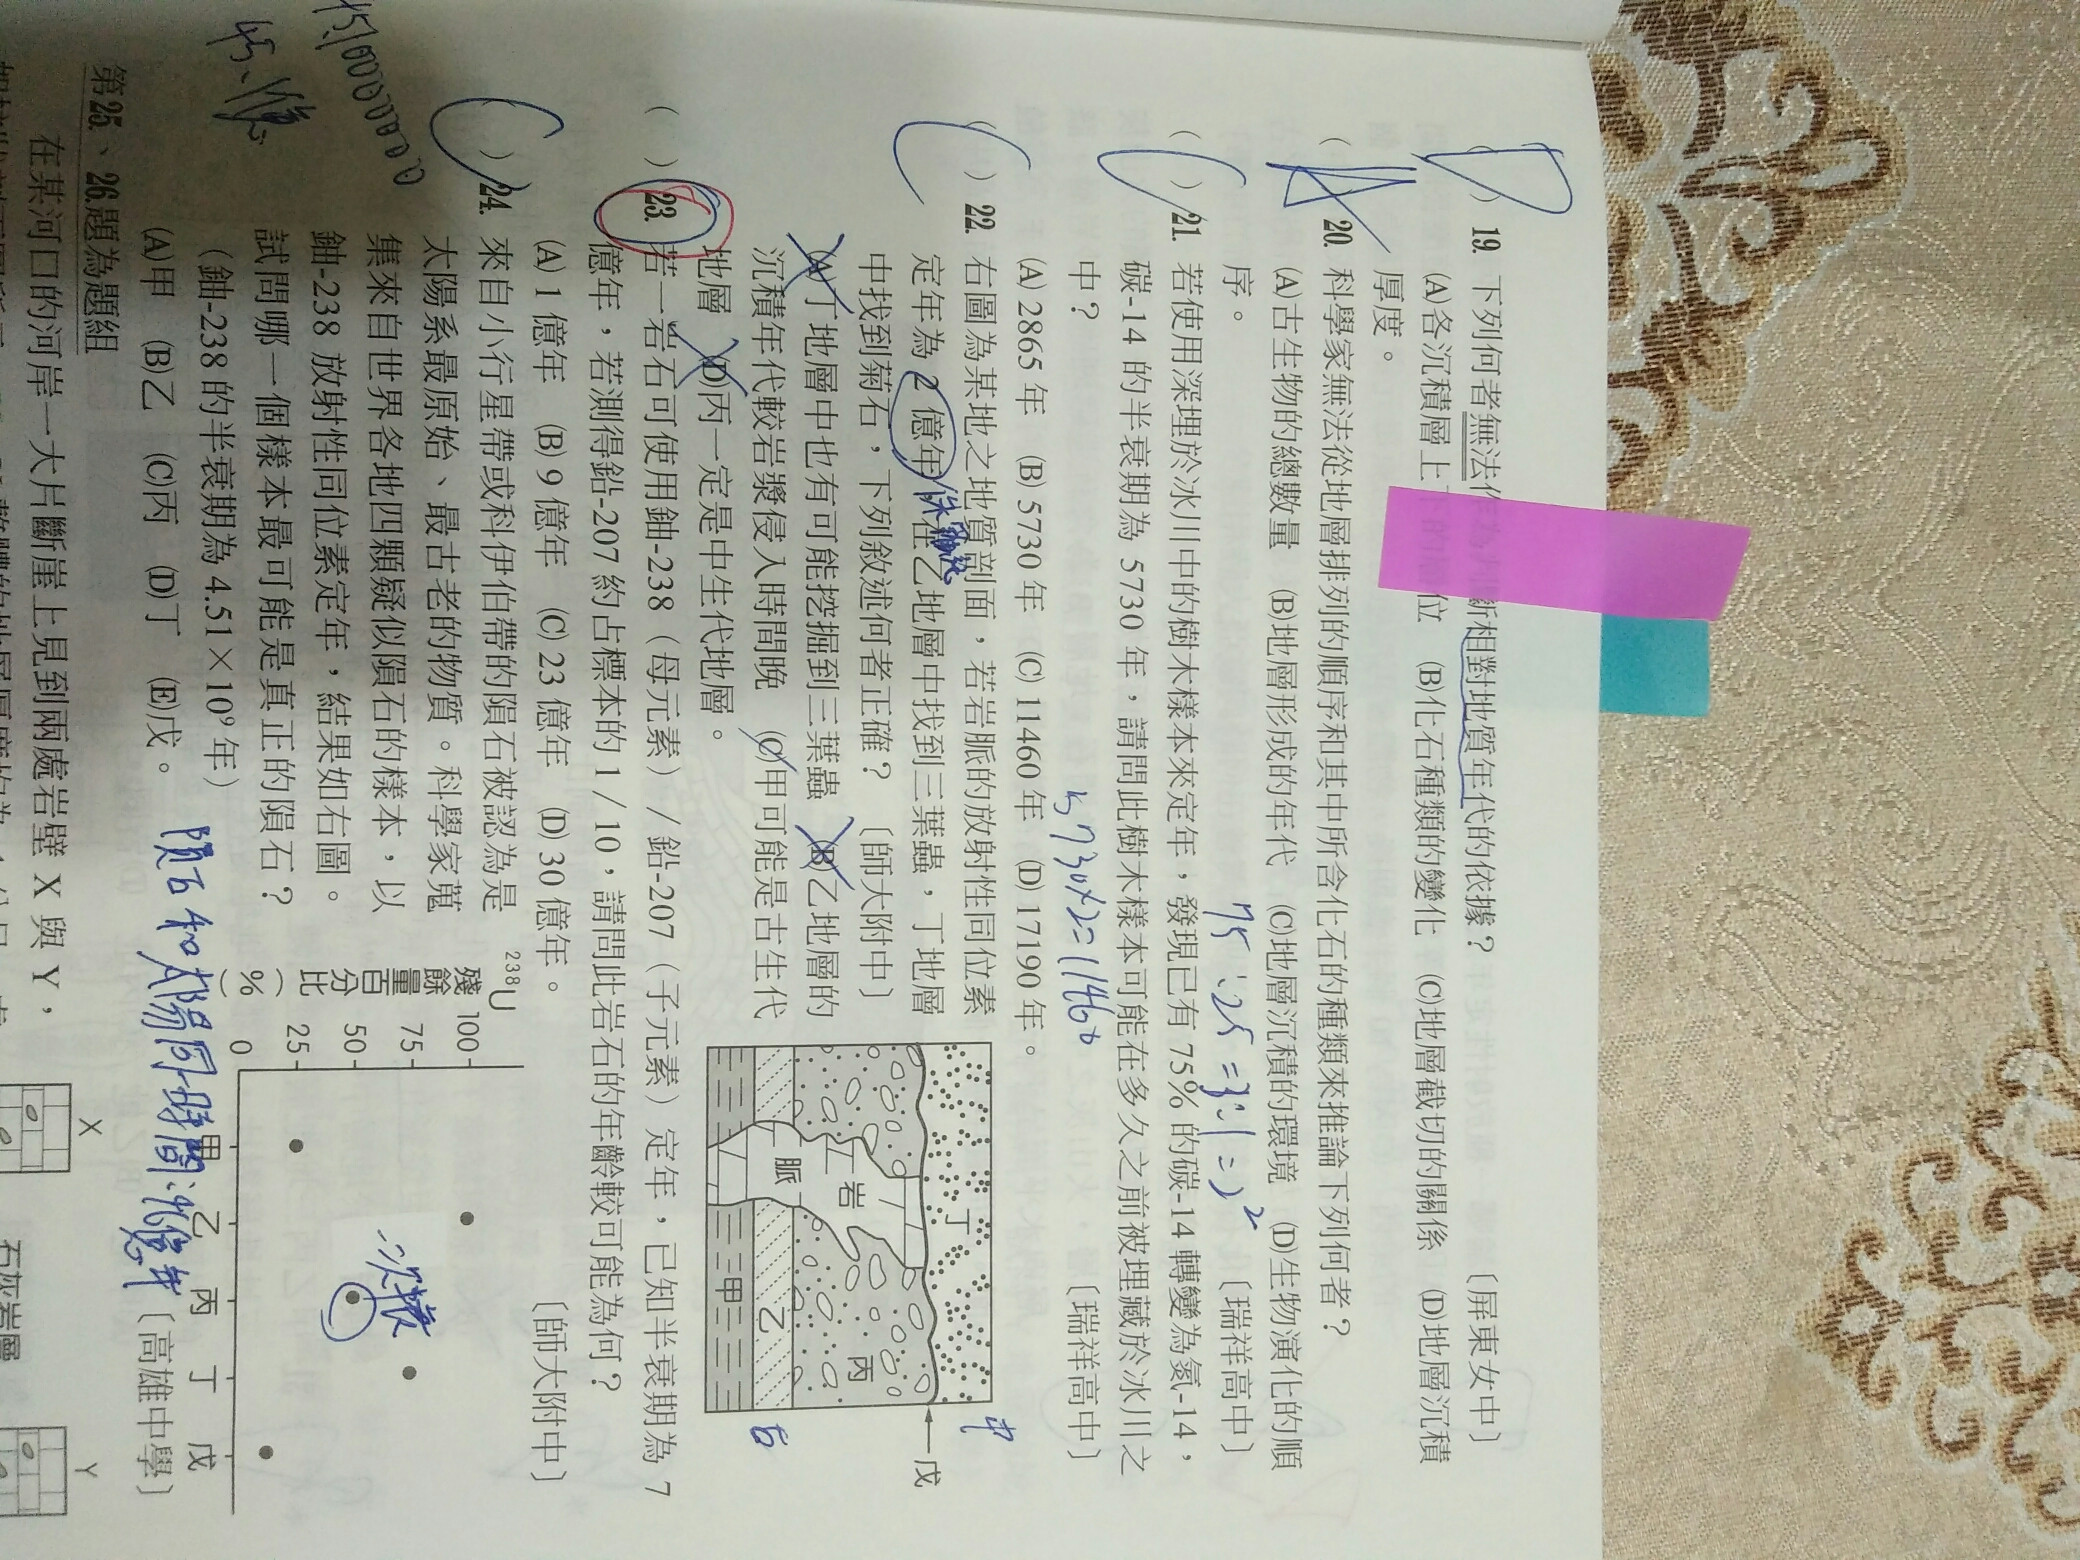 19. 下列何者無法作為判斷相對地質年代的依據？〔屏東女中〕
(A)各沉積層上下的層位 (B)化石種類的變化 (C)地層截切的關係 (D)地層沉積
厚度。
( ) 20. 科學家無法從地層排列的順序和其中所含化石的種類來推論下列何者？
(A)古生物的總數量 (B)地層形成的年代 (C)地層沉積的環境 (D)生物演化的順
序。 75：25＝3：1＝2² 〔瑞祥高中〕
( ) 21. 若使用深埋於冰川中的樹木樣本來定年，發現已有 75% 的碳-14 轉變為氮-14，
碳-14 的半衰期為 5730 年，請問此樹木樣本可能在多久之前被埋藏於冰川之
中？ 5730×2=11460 〔瑞祥高中〕
(A) 2865 年 (B) 5730 年 (C) 11460 年 (D) 17190 年。
22. 右圖為某地之地質剖面，若岩脈的放射性同位素
定年為 2 億年，在乙地層中找到三葉蟲，丁地層
中找到菊石，下列敘述何者正確？〔師大附中〕
(A)丁地層中也有可能挖掘到三葉蟲 (B)乙地層的
沉積年代較岩漿侵入時間晚 (C)甲可能是古生代
地層 (D)丙一定是中生代地層。
丁
岩
脈
丙
乙
甲
戊
中
古
( ) 23. 若一岩石可使用鈾-238（母元素）/ 鉛-207（子元素）定年，已知半衰期為 7
億年，若測得鉛-207 約占標本的 1 / 10，請問此岩石的年齡較可能為何？
(A) 1 億年 (B) 9 億年 (C) 23 億年 (D) 30 億年。〔師大附中〕
( ) 24. 來自小行星帶或科伊伯帶的隕石被認為是
太陽系最原始、最古老的物質。科學家蒐
集來自世界各地四顆疑似隕石的樣本，以
鈾-238 放射性同位素定年，結果如右圖。
試問哪一個樣本最可能是真正的隕石？
（鈾-238 的半衰期為 4.51×10⁹ 年）
(A)甲 (B)乙 (C)丙 (D)丁 (E)戊。
〔高雄中學〕
²³⁸U
殘餘量百分比（%）
100
75
50
25
0
甲 乙 丙 丁 戊
第25、26題為題組
在某河口的河岸一大片斷崖上見到兩處岩壁 X 與 Y，
X
Y
石灰岩層